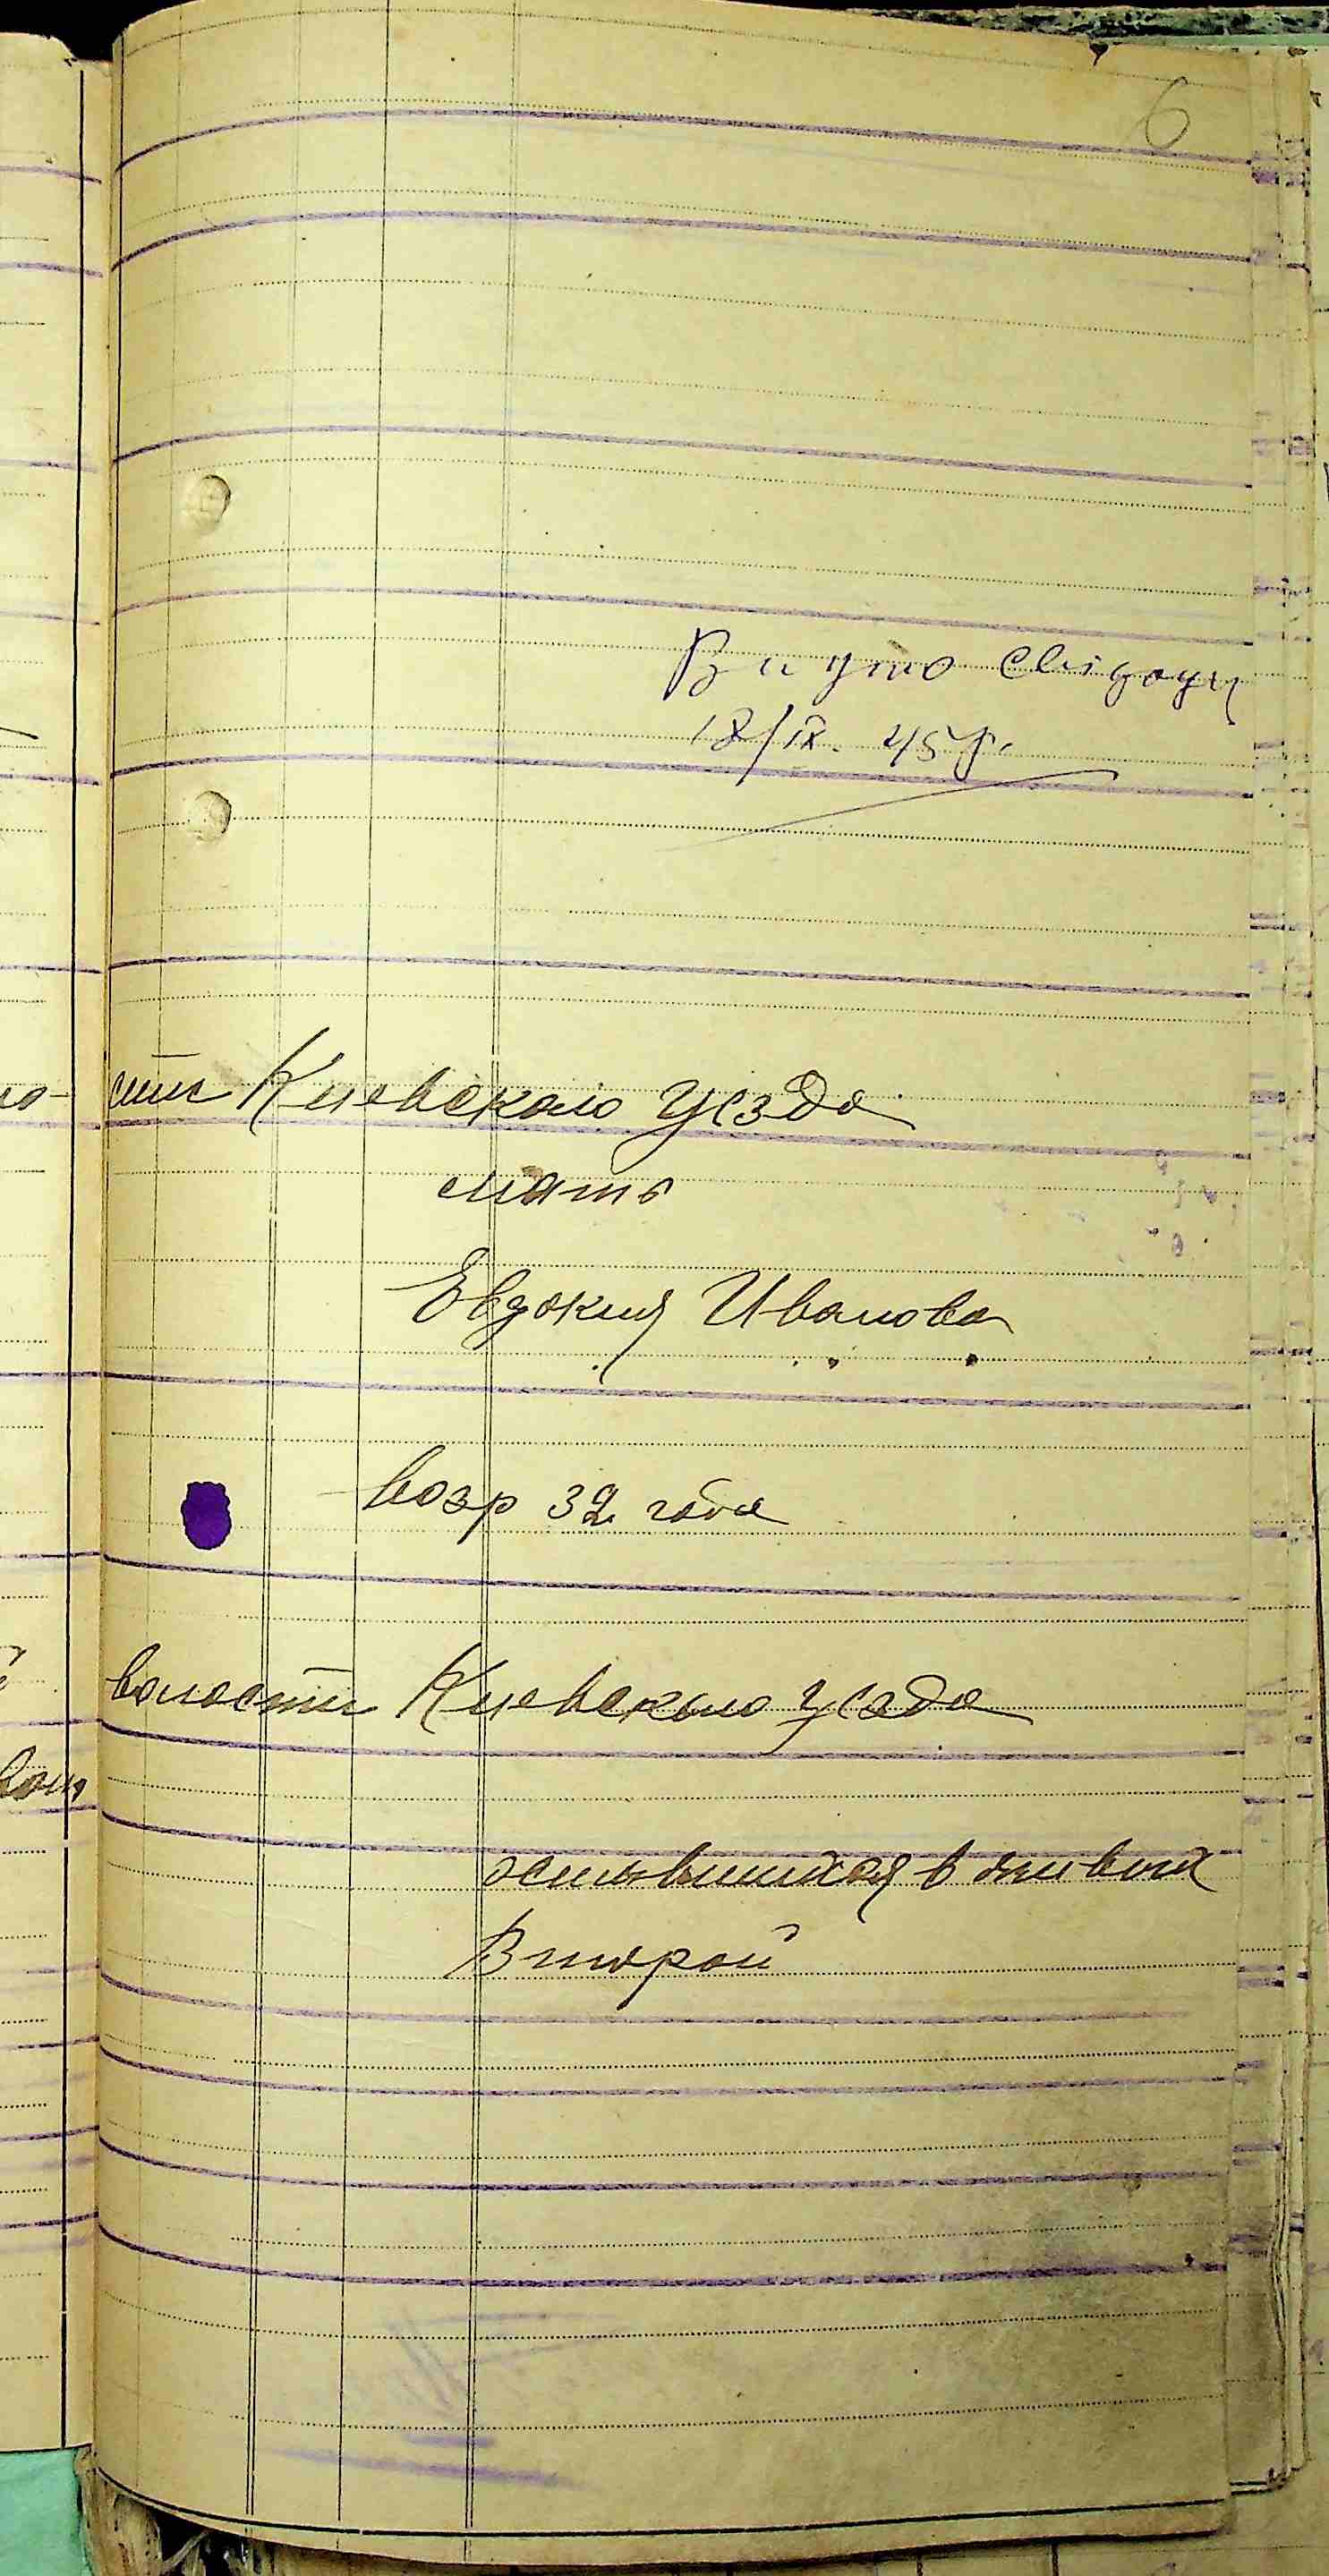 6
Вчуто свідоцт
18/IX. 45 р.
сти Киевского уезда
мать
Евдокия Иванова
возр 32 года
волости Киевского уезда
оставшихся в живых
Второй